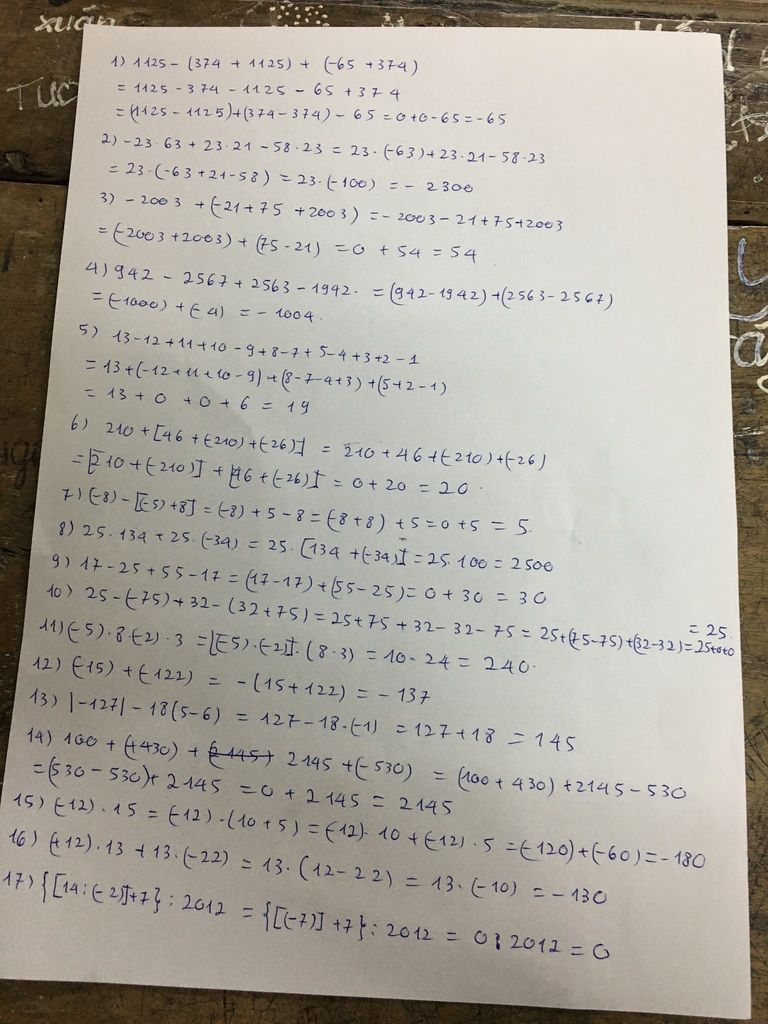 xuân
TUC
1) 1125 - (374 + 1125) + (-65 + 374)
= 1125 - 374 - 1125 - 65 + 374
= (1125 - 1125) + (374 - 374) - 65 = 0 + 0 - 65 = -65
2) -23 . 63 + 23 . 21 - 58 . 23 = 23 . (-63) + 23 . 21 - 58 . 23
= 23 . (-63 + 21 - 58) = 23 . (-100) = - 2300
3) - 2003 + (-21 + 75 + 2003) = - 2003 - 21 + 75 + 2003
= (-2003 + 2003) + (75 - 21) = 0 + 54 = 54
4) 942 - 2567 + 2563 - 1942. = (942 - 1942) + (2563 - 2567)
= (-1000) + (-4) = - 1004.
5) 13 - 12 + 11 + 10 - 9 + 8 - 7 + 5 - 4 + 3 + 2 - 1
= 13 + (-12 + 11 + 10 - 9) + (8 - 7 - 4 + 3) + (5 + 2 - 1)
= 13 + 0 + 0 + 6 = 19
6) 210 + [46 + (-210) + (-26)] = 210 + 46 + (-210) + (-26)
= [210 + (-210)] + [46 + (-26)] = 0 + 20 = 20.
7) (-8) - [(-5) + 8] = (-8) + 5 - 8 = (-8 + 8) + 5 = 0 + 5 = 5.
8) 25 . 134 + 25 . (-34) = 25 . [134 + (-34)] = 25 . 100 = 2500
9) 17 - 25 + 55 - 17 = (17 - 17) + (55 - 25) = 0 + 30 = 30
10) 25 - (-75) + 32 - (32 + 75) = 25 + 75 + 32 - 32 - 75 = 25 + (75 - 75) + (32 - 32) = 25 + 0 + 0
= 25.
11) (-5) . 8 . (-2) . 3 = [(-5) . (-2)] . (8 . 3) = 10 . 24 = 240.
12) (-15) + (-122) = - (15 + 122) = - 137
13) |-127| - 18(5 - 6) = 127 - 18 . (-1) = 127 + 18 = 145
14) 100 + (+430) + 2145 + (-530) = (100 + 430) + 2145 - 530
= (530 - 530) + 2145 = 0 + 2145 = 2145
15) (-12) . 15 = (-12) . (10 + 5) = (-12) . 10 + (-12) . 5 = (-120) + (-60) = - 180
16) (+12) . 13 + 13 . (-22) = 13 . (12 - 22) = 13 . (-10) = - 130
17) {[14 : (-2)] + 7} : 2012 = {[(-7)] + 7} : 2012 = 0 : 2012 = 0